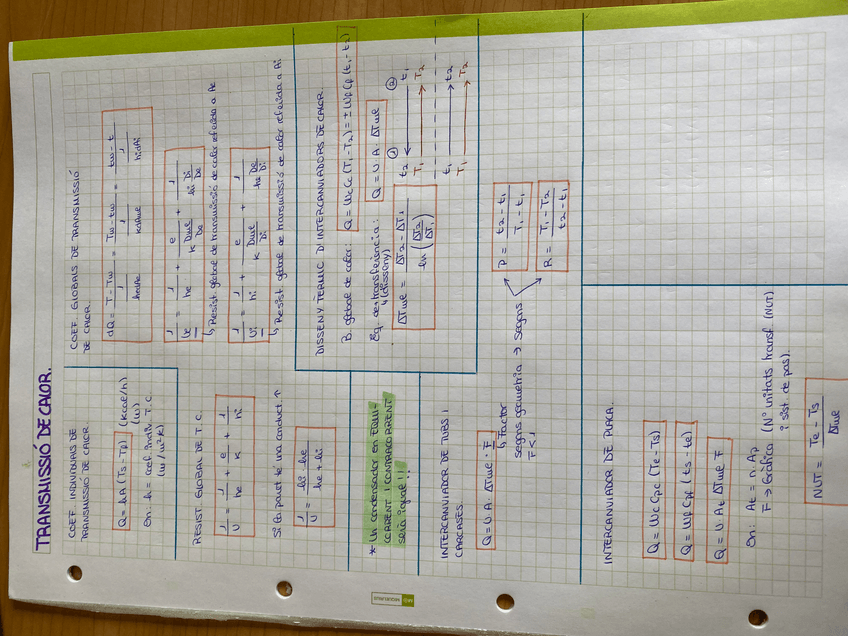 TRANSMISSIÓ DE CALOR.
COEF. INDIVIDUALS DE
TRANSMISSIÓ DE CALOR
Q = hA (Ts - Tf) (kcal/h)
(W)
On: h = coef. indiv. T.C.
(W/m²K)
RESIST. GLOBAL DE T.C.
1/U = 1/he + e/k + 1/hi
Si la paret té una conduct. ↑
1/U = hi · he / he + hi
* Un condensador en EQUI-
CORRENT I CONTRACORRENT
seria igual!!
INTERCANVIADOR DE TUBS I
CARCASES.
Q = U · A · ΔTml · F
↳ Factor
segons geometria → segons
F < 1
P = t2 - t1 / T1 - t1
R = T1 - T2 / t2 - t1
INTERCANVIADOR DE PLACA.
Q = Wc Cpc (Te - Ts)
Q = Wf Cpf (ts - te)
Q = U At ΔTml F
On: At = n · Ap
F → Gràfica (Nº unitats transf (NUT)
i sist. de pas).
NUT = Te - Ts / ΔTml
COEF. GLOBALS DE TRANSMISSIÓ
DE CALOR
dQ = T - Tw / 1/he·Ae = Tw - tw / 1/k·Aml = tw - t / 1/hi·Ai
1/Ue = 1/he + e / k Dml/De + 1 / hi Di/De
↳ Resist. global de transmissió de calor referida a Ae
1/Ui = 1/hi + e / k Dml/Di + 1 / he De/Di
↳ Resist. global de transmissió de calor referida a Ai.
DISSENY TÈRMIC D'INTERCANVIADORS DE CALOR.
B. global de calor: Q = Wc Cc (T1 - T2) = ± Wf Cf (t1 - t2)
Eq. de transferència: Q = U · A · ΔTml
↳ (disseny)
ΔTml = ΔT2 - ΔT1 / ln (ΔT2/ΔT1)
① ②
t2 ← t1
T1 → T2
t1 → t2
T1 → T2
MIQUELRIUS